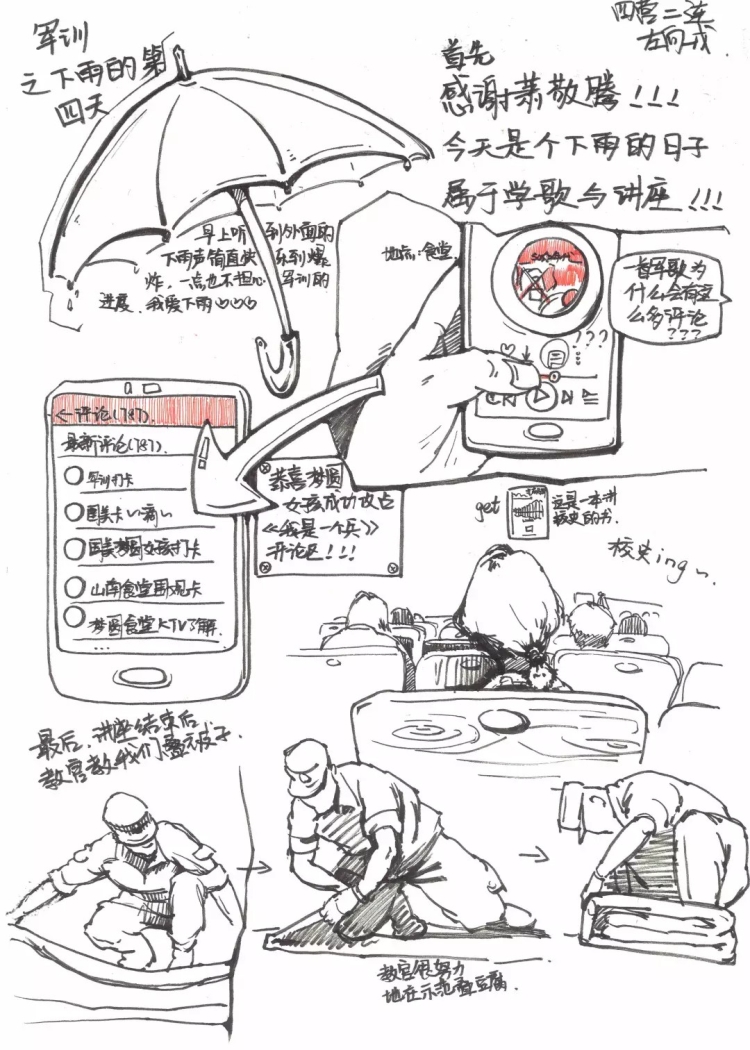 军训
之下雨的第
四天
四营二连
左向戎
首先
感谢萧敬腾!!!
今天是个下雨的日子
属于学歌与讲座!!!
早上听到外面的
下雨声简直快乐到爆
炸,一点也不担心军训的
进度.我爱下雨♡♡♡
地点:食堂
一首军歌为
什么会有这
么多评论
???
???
←评论(787)
最新评论(787).
军训打卡
国美卡~滴~
国美梦圆女孩打卡
山南食堂围观卡
梦圆食堂KTV了解.
...
恭喜梦圆
女孩成功攻占
《我是一个兵》
评论区!!!
get
这是一本讲
校史的书.
校史ing~.
最后,讲座结束后,
教官教我们叠被子.
教官很努力
地在示范叠豆腐.